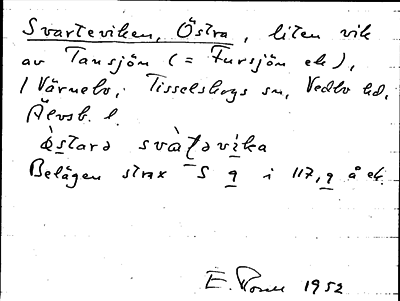 Svarteviken, Östra, liten vik
av Tansjön (= Fursjön ek),
i Värnebo, Tisselskogs sn, Vedbo hd,
Älvsb. l.
òstarə svàʈəvika
Belägen strax S q i 117,9 å ek.
E. 1952